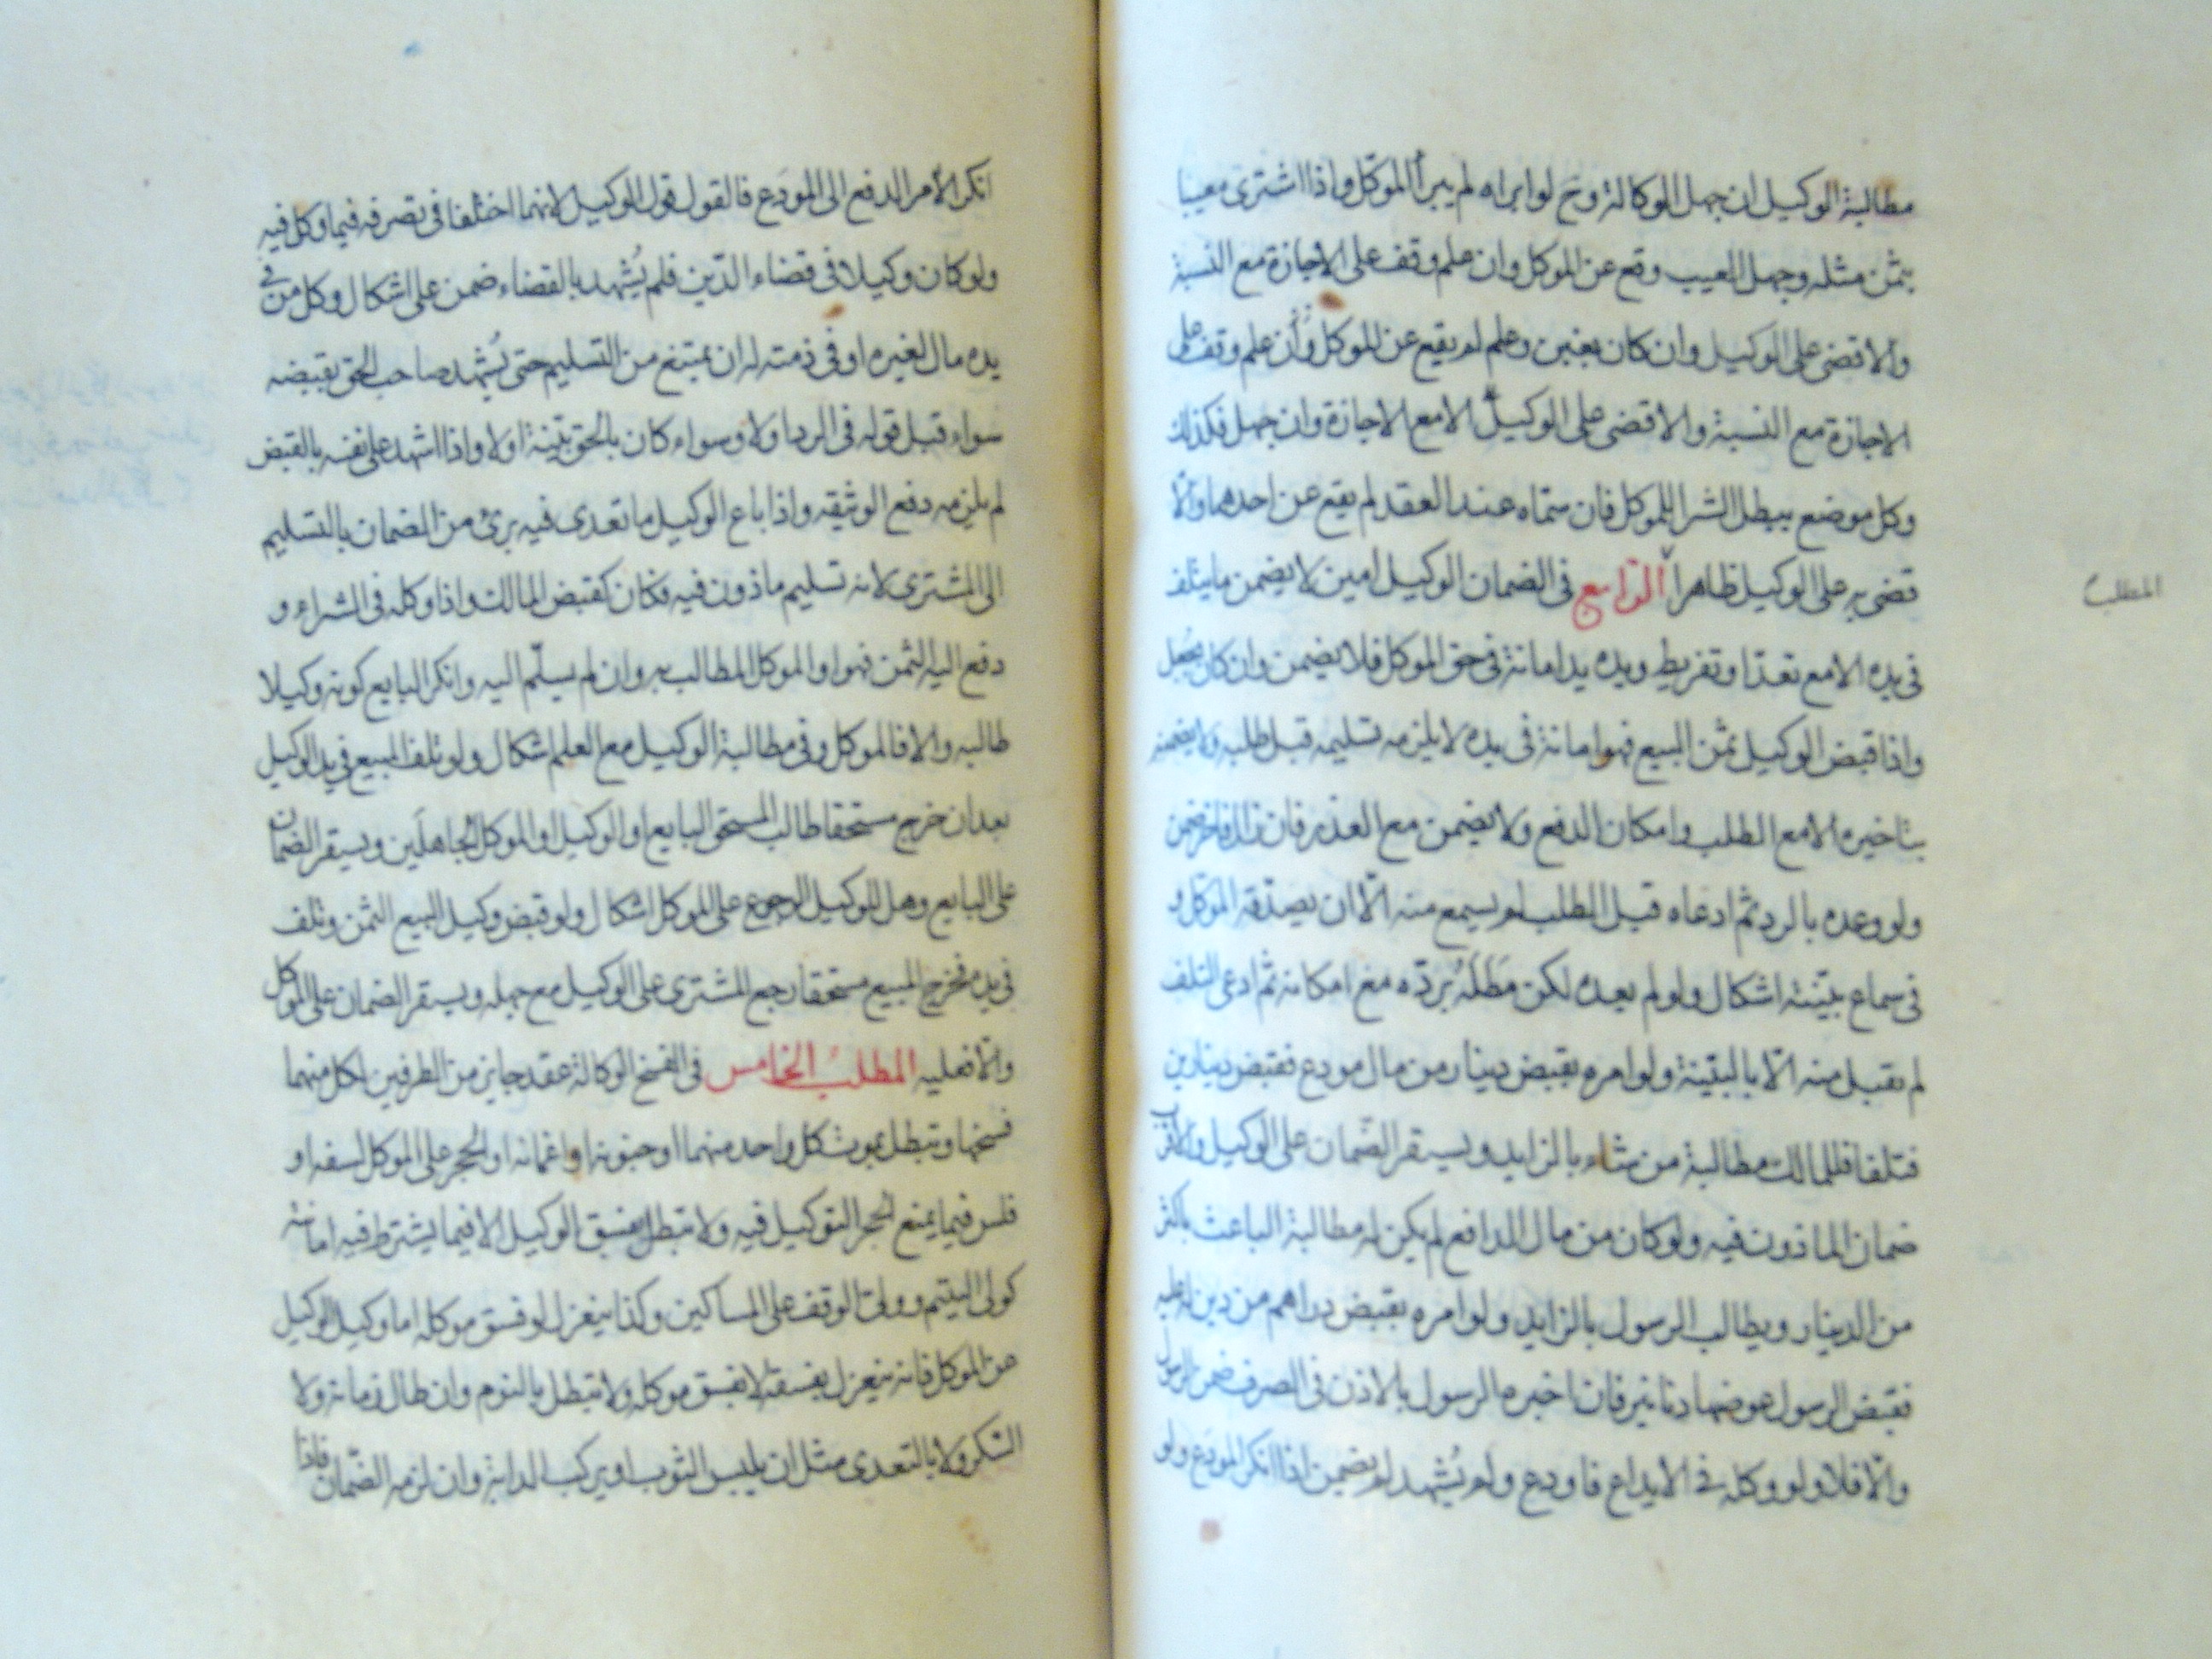 مطالبة الوكيل ان جهل الوكالة وح لو ابراه لم يبرأ الموكل واذا اشترى معيبا
بثمن مثله وجهل العيب وقع عن الموكل وان علم وقف على الاجازة مع النسبة
والا قضى على الوكيل وان كان بغبن وعلم لم يقع عن الموكل وان علم وقف على
الاجازة مع النسبة والا قضى على الوكيل الا مع الاجازة وان جهل فكذلك
وكل موضع يبطل الشرا للموكل فان سماه عند العقد لم يقع عن احدهما والا
قضى به على الوكيل ظاهرا الرابع في الضمان الوكيل امين لا يضمن ما يتلف
المطلب
في يده الا مع تعد او تفريط ويده يد امانة في حق الموكل فلا يضمن وان كان بجعل
واذا قبض الوكيل ثمن المبيع فهو امانة في يده لا يلزمه تسليمه قبل طلبه ولا يضمنه
بتاخيره الا مع الطلب وامكان الدفع ولا يضمن مع العذر فان زال فاخر ضمن
ولو وعده بالرد ثم ادعاه قبل الطلب لم يسمع منه الّا ان يصدّقه الموكل و
في سماع بيّنته اشكال ولو لم يعده لكن مطله بردّه مع امكانه ثم ادعى التلف
لم يقبل منه الّا بالبيّنة ولو امره بقبض دينار من مال مودع فقبض دينارين
فتلفا فللمالك مطالبة من شاء بالزايد ويستقر الضمان على الوكيل والاقرب
ضمان الماذون فيه ولو كان من مال الدافع لم يكن له مطالبة الباعث باكثر
من الدينار ويطالب الرسول بالزايد ولو امره بقبض دراهم من دين له عليه
فقبض الرسول عوضها دنانير فان اخبره الرسول بالاذن في الصرف ضمن الرسول
والّا فلا ولو وكله في الايداع فاودع ولم يُشهد لم يضمن اذا انكر المودَع ولو
انكر الأمر الدفع الى المودَع فالقول قول الوكيل لانهما اختلفا في تصرفه فيما وكل فيه
ولو كان وكيلا في قضاء الدّين فلم يُشهد بالقضاء ضمن على اشكال وكل من في
يده مال لغيره او في ذمته له ان يمتنع من التسليم حتى يُشهد صاحب الحق بقبضه
سواء قبل قوله في الرد اولا وسواء كان بالحق بيّنة اولا واذا اشهد على نفسه بالقبض
لم يلزمه دفع الوثيقه واذا باع الوكيل ما تعدى فيه برئ من الضمان بالتسليم
الى المشترى لانه تسليم ماذون فيه فكان كقبض المالك واذا وكله في الشراء و
دفع اليه الثمن فهو او الموكل المطالب به وان لم يسلّم اليه وانكر البايع كونه وكيلا
طالبه والا فالموكل وفي مطالبة الوكيل مع العلم اشكال ولو تلف المبيع في يد الوكيل
بعد ان خرج مستحقا طالب المستحق البايع او الوكيل او الموكل الجاهلَين ويستقر الضمان
على البايع وهل للوكيل الرجوع على الموكل اشكال ولو قبض وكيل البيع الثمن وتلف
في يده فخرج المبيع مستحقا رجع المشترى على الوكيل مع جهله ويستقر الضمان على الموكل
والّا فعليه المطلب الخامس في الفسخ الوكالة عقد جايز من الطرفين لكل منهما
فسخها وتبطل بموت كل واحد منهما او جنونه او اغمائه او الحجر على الموكل لسفه او
فلس فيما يمنع الحجر التوكيل فيه ولا تبطل بفسق الوكيل الا فيما يشترط فيه امانته
كولى اليتيم وولى الوقف على المساكين وكذا ينعزل لو فسق موكله اما وكيل الوكيل
عن الموكل فانه ينعزل بفسقه لا بفسق موكله ولا تبطل بالنوم وان طال زمانه ولا
السّكر ولا بالتعدى مثل ان يلبس الثوب او يركب الدابة وان لزمه الضّمان فاذا